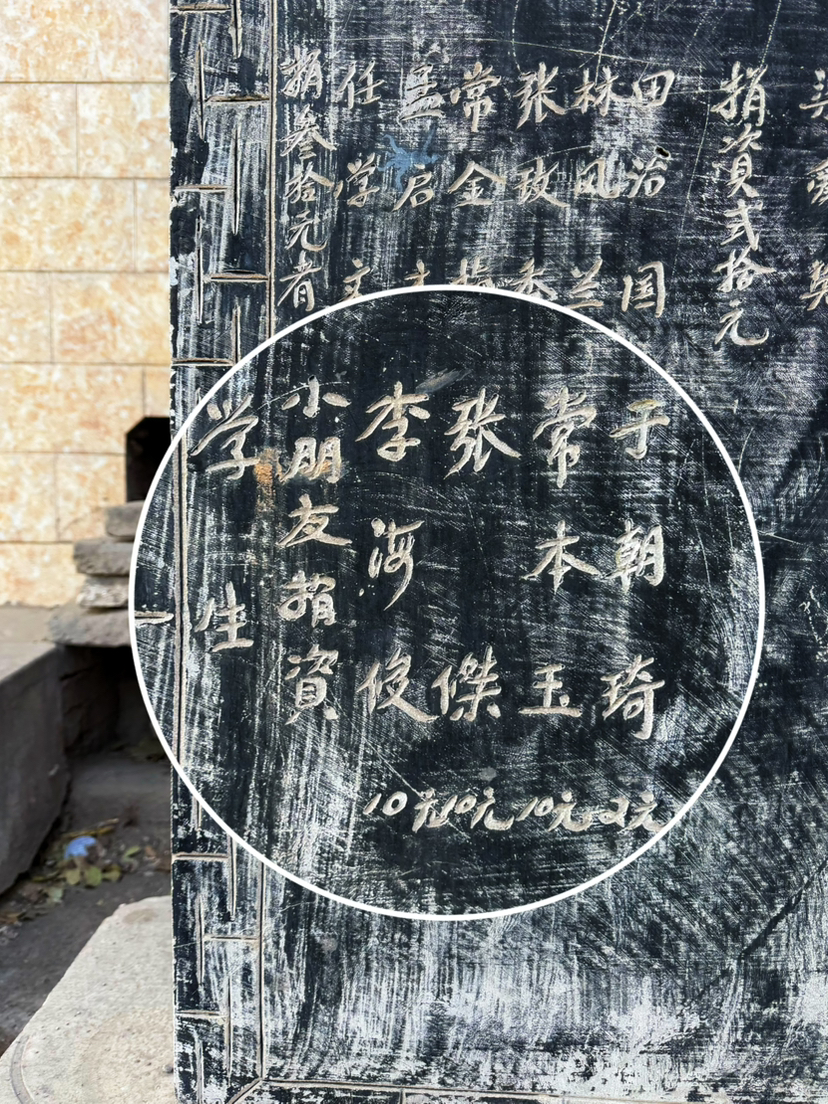 捐資弍拾元
田治国
林风兰
张玫
常金
孟启
任学文
捐叁拾元者
于朝琦2元
常本玉10元
张傑10元
李海俊10元
小朋友捐資
学生